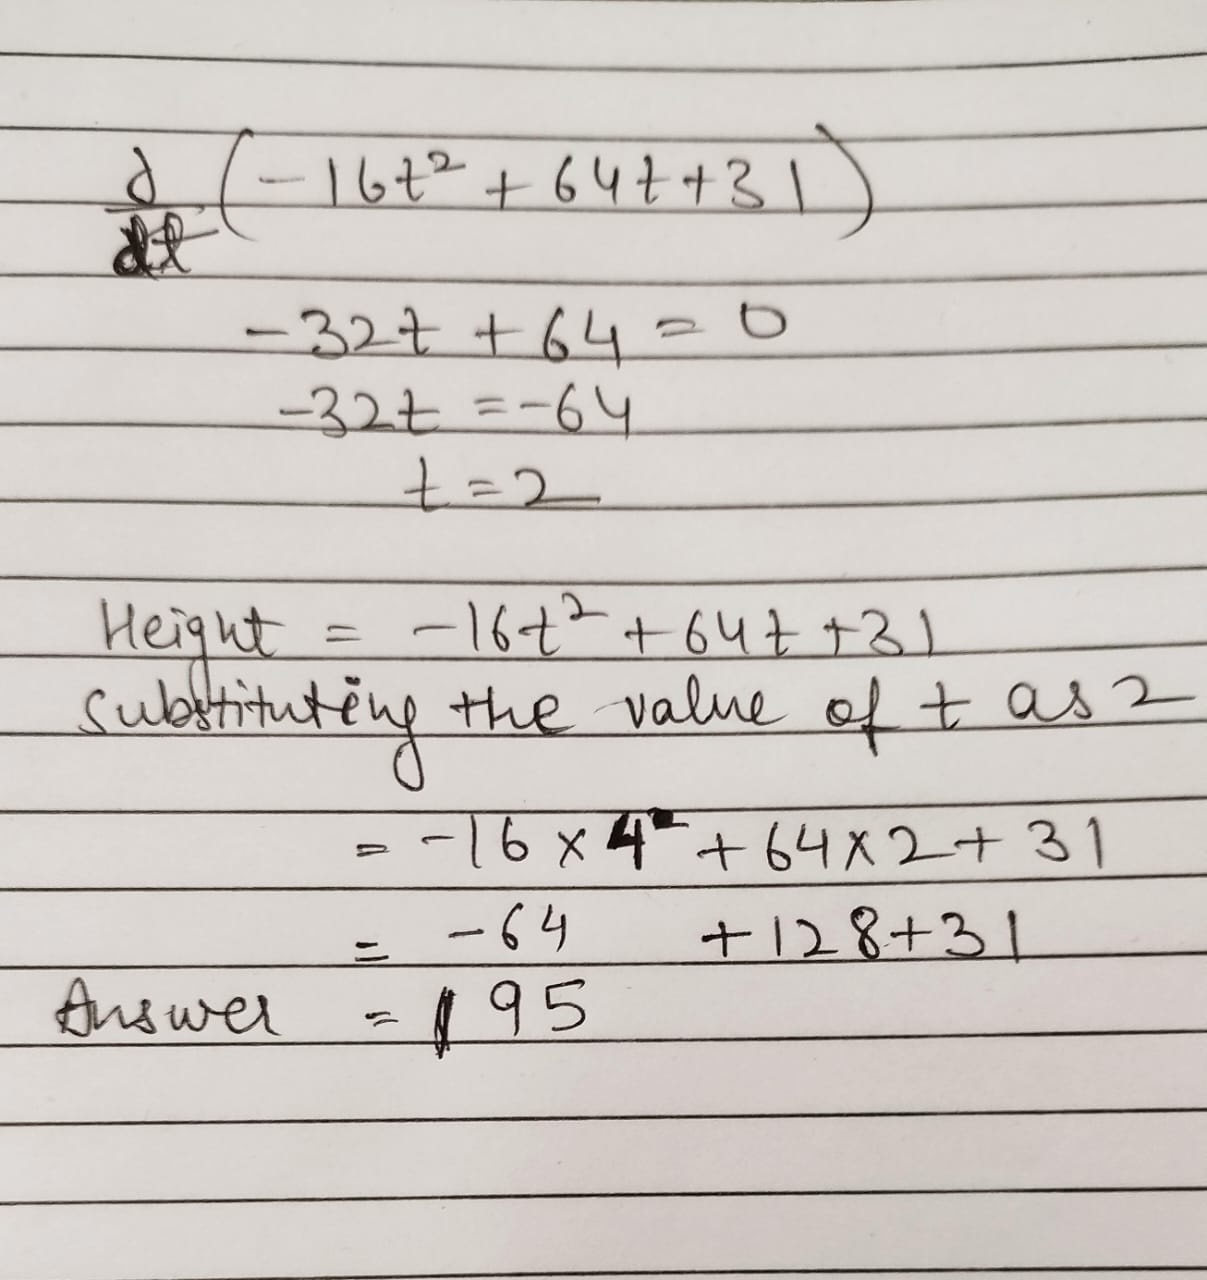 d/dt (-16t² + 64t + 31)
-32t + 64 = 0
-32t = -64
t = 2
Height = -16t² + 64t + 31
substituting the value of t as 2
= -16 x 4 + 64 x 2 + 31
= -64 + 128 + 31
Answer = 95